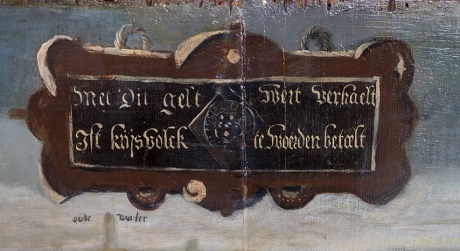 Met Dit gelt Wert verhaelt
Ist krijsvolck te woerden betaelt
oude water